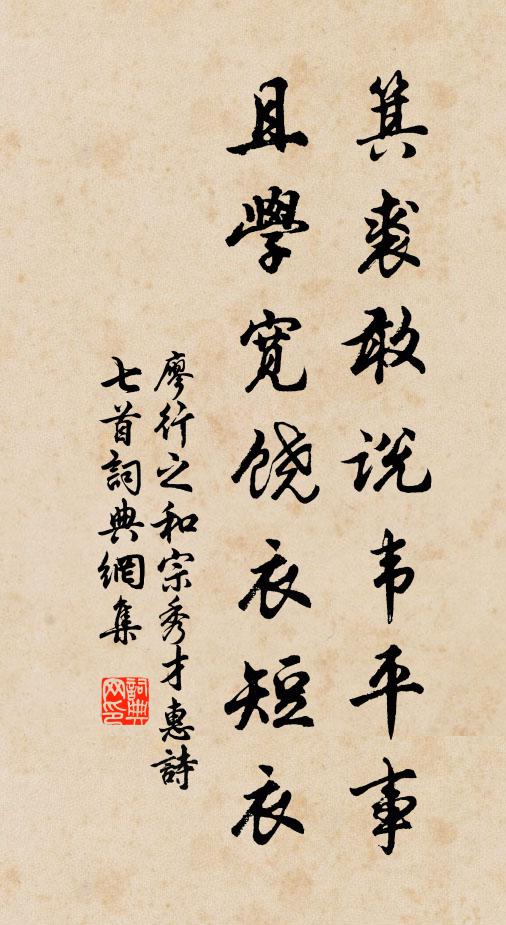 箕裘敢说韦平事
且學寛饶衣短衣
廖行之和宗秀才惠詩
七首詞典網集
詞典
网印